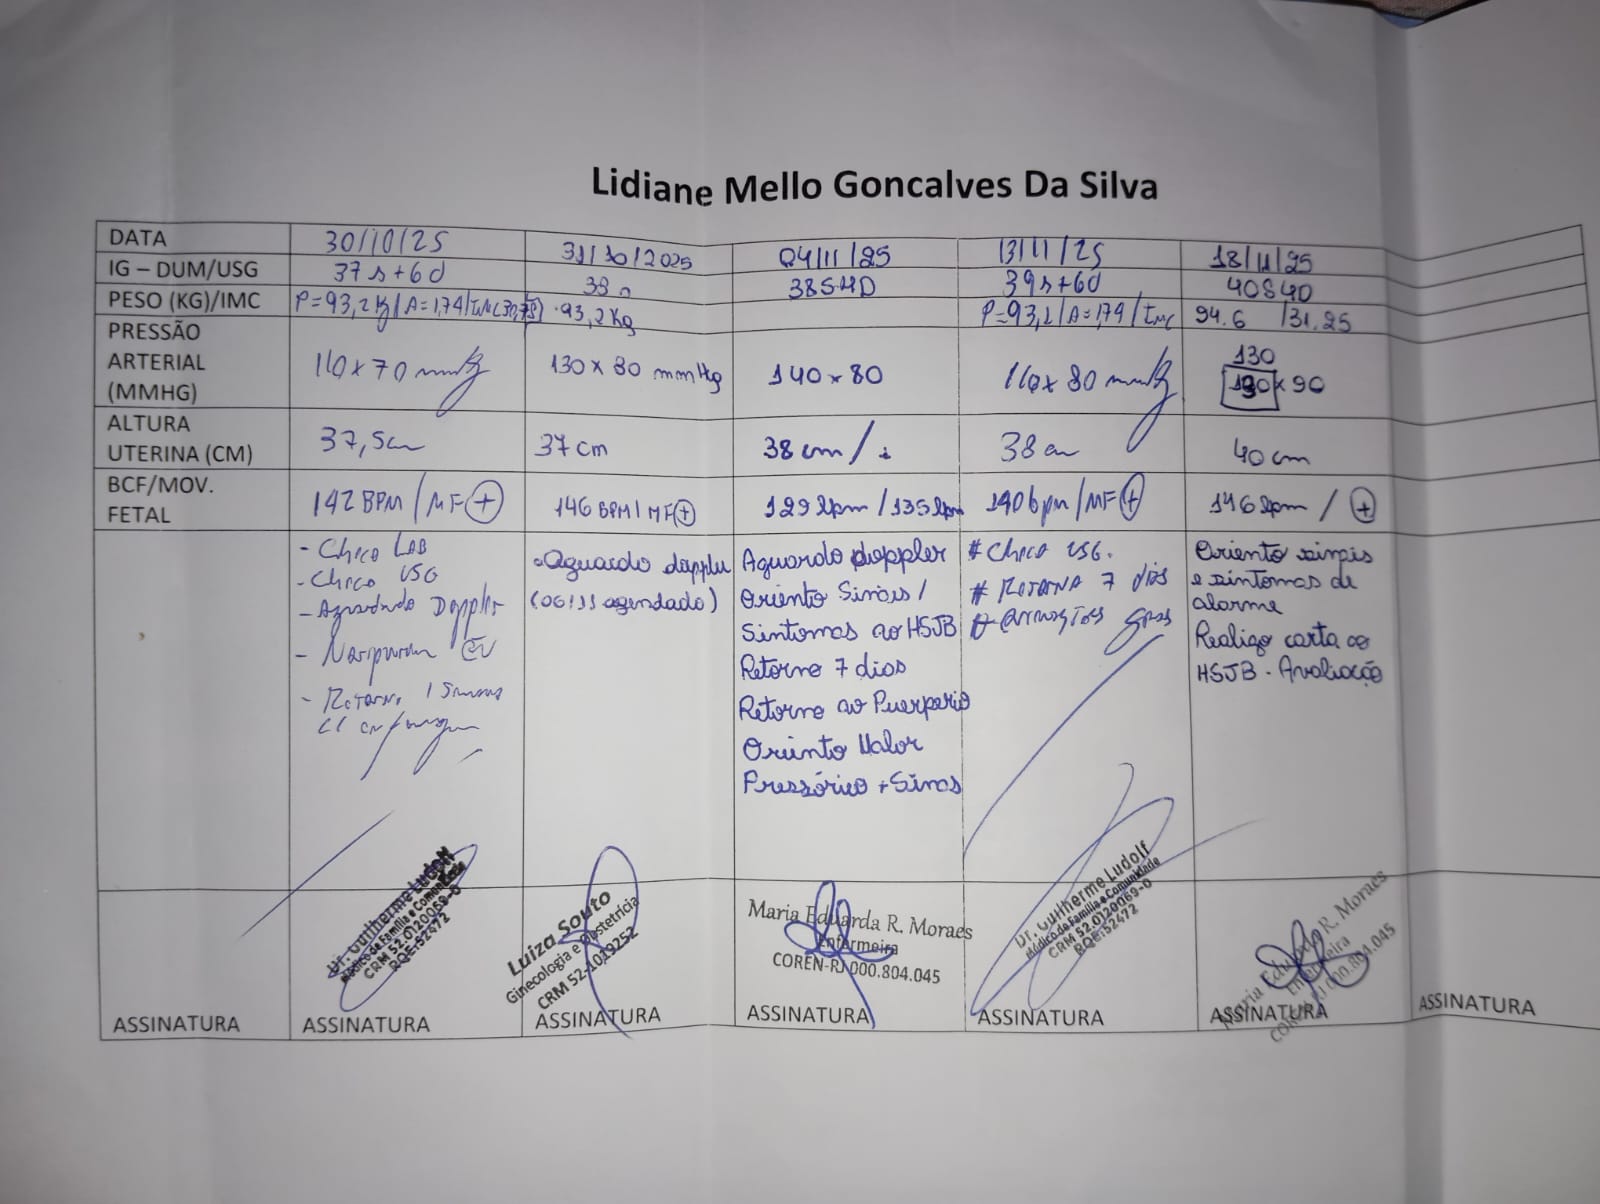 Lidiane Mello Goncalves Da Silva
DATA 30/10/25 31/10/2025 04/11/25 13/11/25 18/11/25
IG – DUM/USG 37s+6d 38s 38S4D 39s+6d 40S4D
PESO (KG)/IMC P=93,2Kg/A=1,74/IMC 30,78 93,2Kg P=93,2/A=1,74/IMC 94.6 /31.25
PRESSÃO
ARTERIAL
(MMHG)
110x70 mmHg
130x80 mmHg
140x80
110x80 mmHg
130
x90
ALTURA
UTERINA (CM)
37,5cm
37cm
38cm/
38cm
40cm
BCF/MOV.
FETAL
142BPM/MF+
146BPM/MF+
129bpm/135bpm
140bpm/MF+
146bpm/+
- Checo LAB
- Checo USG
- Aguardando Doppler
-
- Retorno 1 semana
c/ enfermagem
Aguardo doppler
(06/11 agendado)
Aguardo doppler
Oriento Sinais/
Sintomas ao HSJB
Retorno 7 dias
Retorno ao Puerperio
Oriento Valor
Pressórico + Sinais
# Checo USG.
# Retorna 7 dias
# Orientações gerais
Oriento sinais
e sintomas de
alarme
Realizo carta ao
HSJB - Avaliação
ASSINATURA
Dr. Guilherme Ludolf
Médico de Família e Comunidade
CRM 52.0120069-0
RQE:52472
ASSINATURA
Luiza Souto
Ginecologia e Obstetrícia
CRM 52-1019252
ASSINATURA
Maria Eduarda R. Moraes
Enfermeira
COREN-RJ 000.804.045
ASSINATURA
Dr. Guilherme Ludolf
Médico de Família e Comunidade
CRM 52.0120069-0
RQE:52472
ASSINATURA
Maria Eduarda R. Moraes
Enfermeira
COREN-RJ 000.804.045
ASSINATURA
ASSINATURA